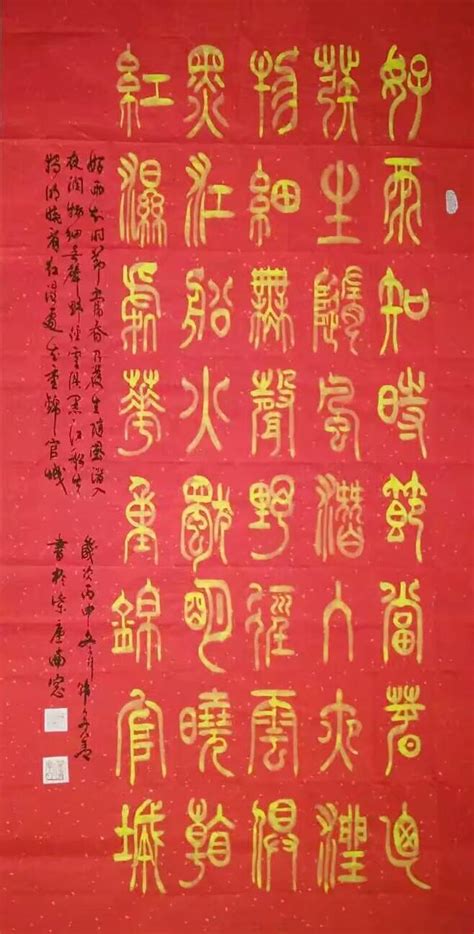 好雨知時節當春乃
發生隨風潛入夜潤
物細無聲野徑雲俱
黑江船火獨明曉看
紅濕處華重錦官城
好雨知时節當春乃發生随風潜入
夜润物细無聲野径雲俱黑江船火
獨明曉看红濕處花重錦官城
歲次丙申
書於